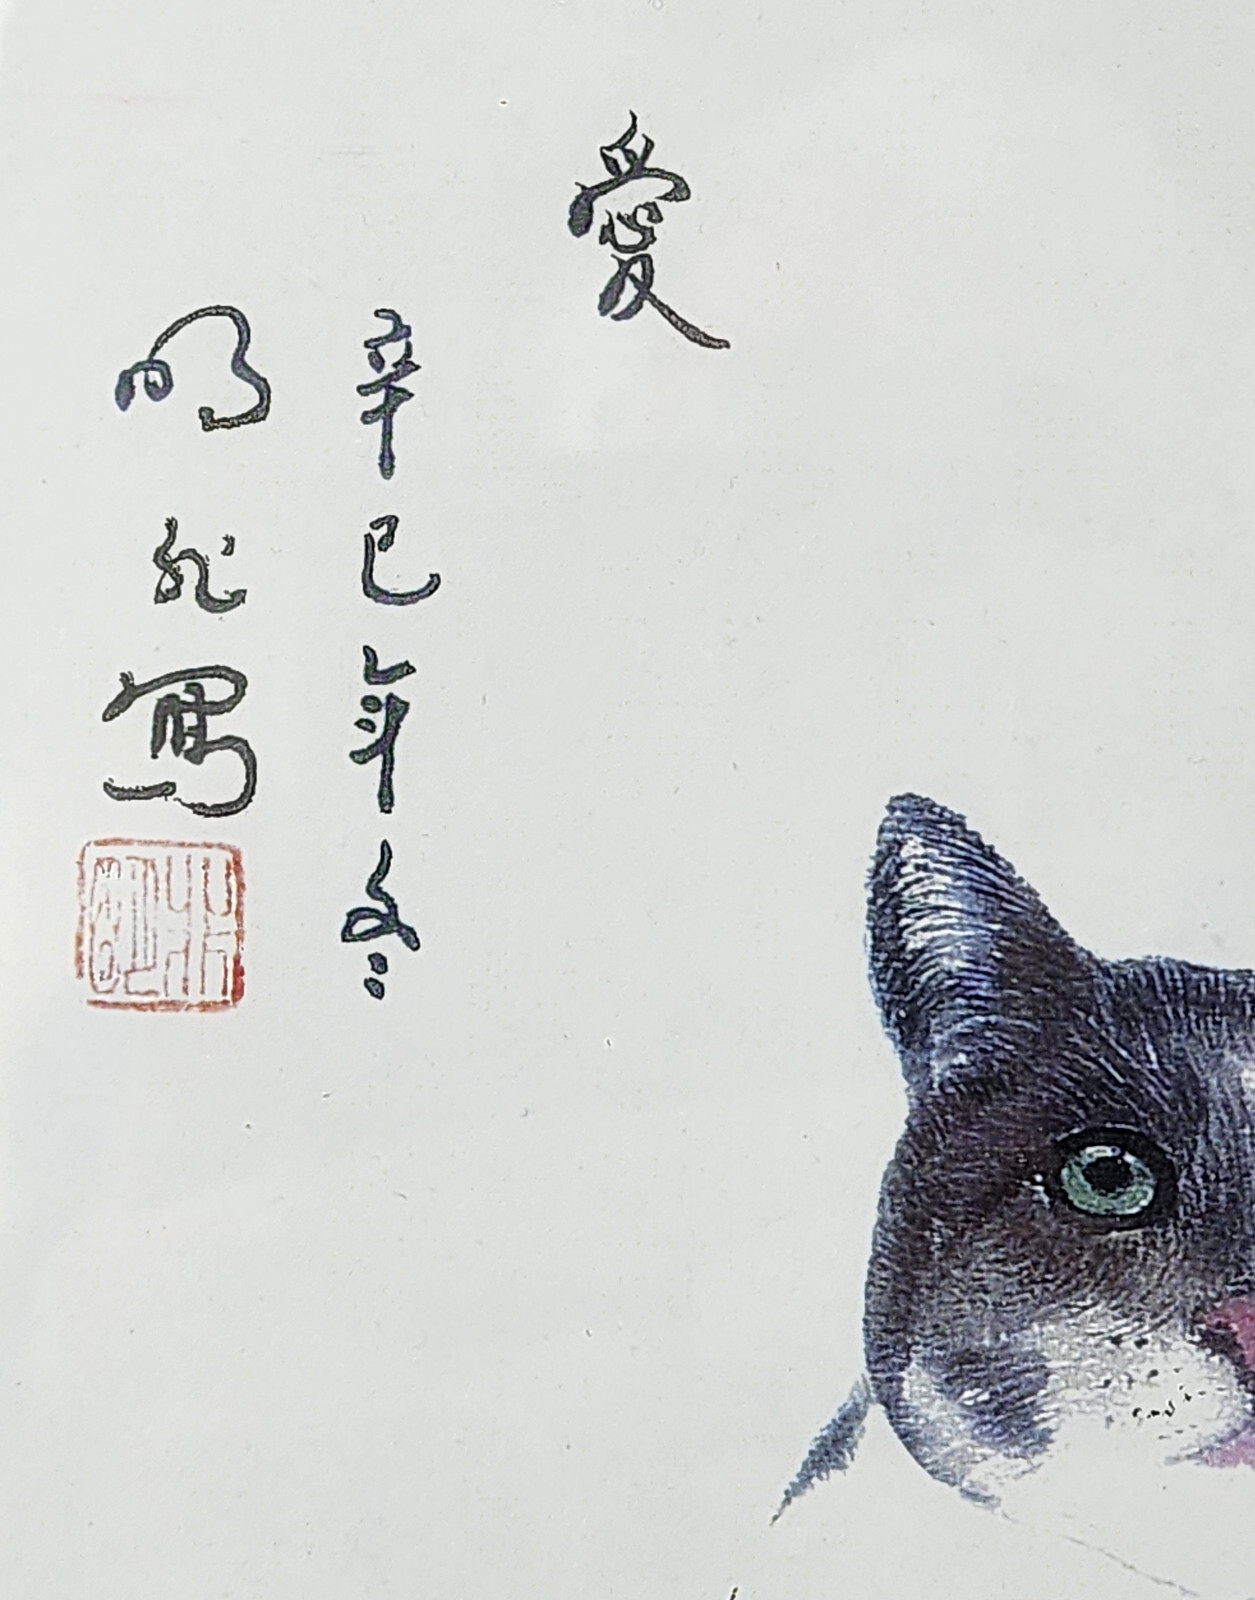 愛
辛巳年冬
明 寫